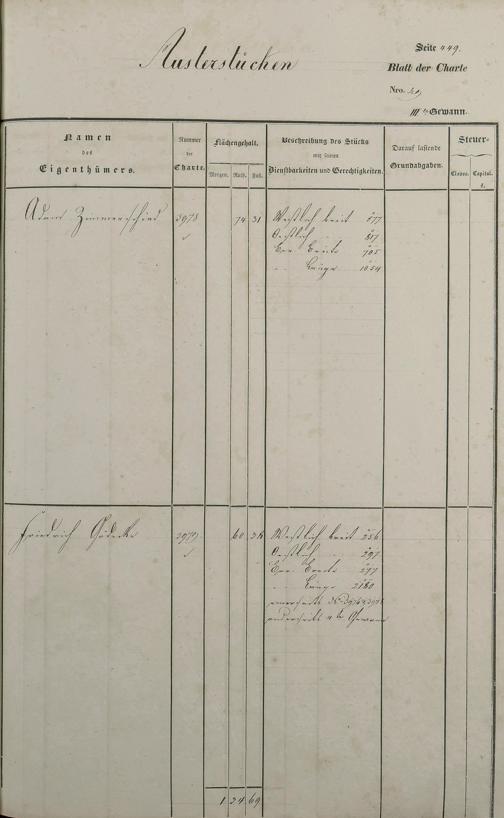 Seite 449.
Blatt der Charte
Nro.
IIIte Gewann.
Namen
des
Eigenthümers.
Nummer
der
Charte.
Flächengehalt.
Morgen. Ruth. Fuß.
Beschreibung des Stücks
mit seinen
Dienstbarkeiten und Gerechtigkeiten.
Darauf lastende
Grundabgaben.
Steuer-
Classe. Capital.
Adam Zimmerschied 3978 74 31 Westlich breit 777
Oestlich 817
Ger. Breite 705
Länge 1054
Friedrich 3979 60 38 Westlich breit 256
Oestlich 297
Ger. Breite 277
Länge 2180
einerseits
anderseits Gewann
1 34 69